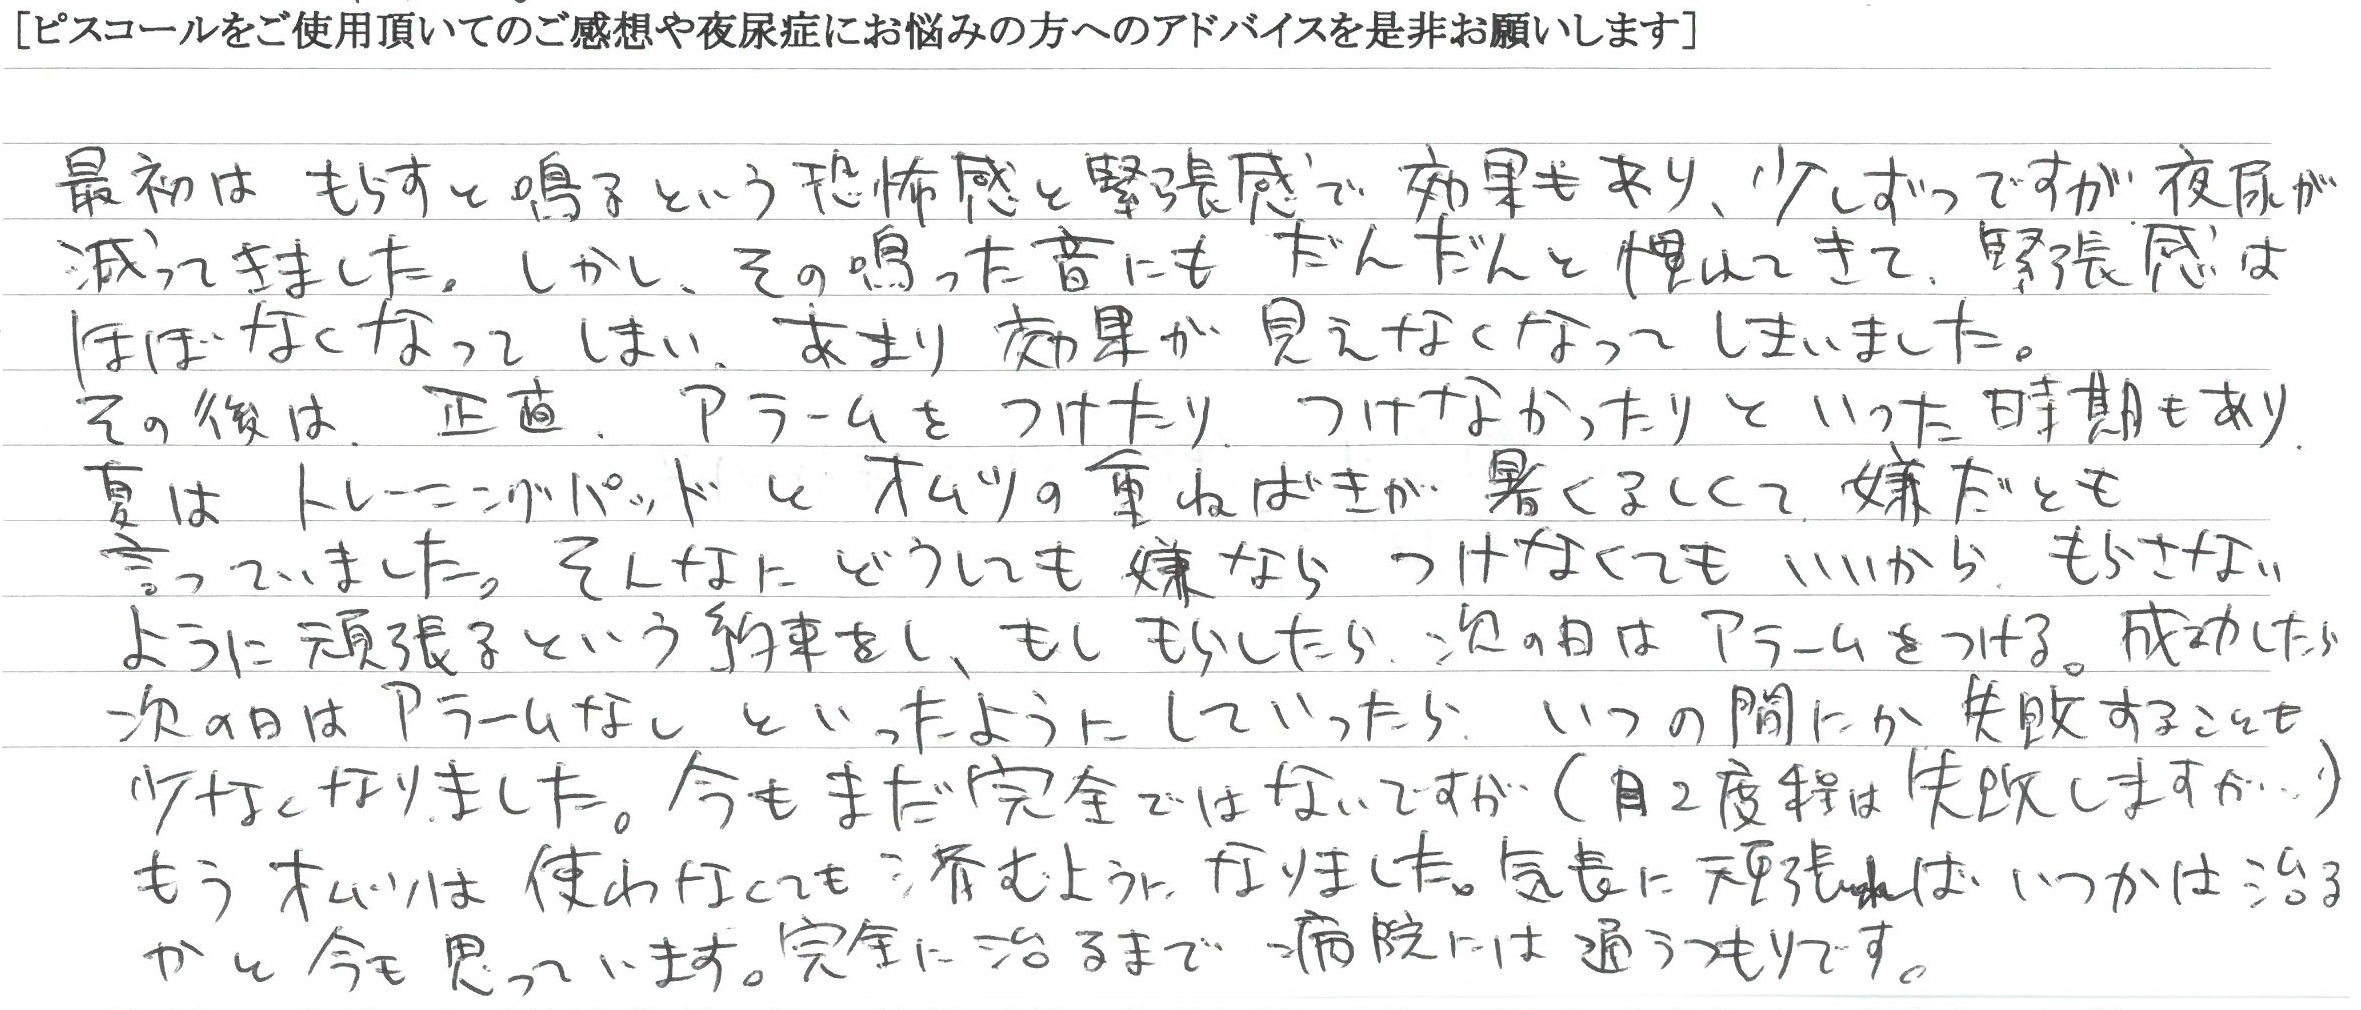 [ピスコールをご使用頂いてのご感想や夜尿症にお悩みの方へのアドバイスを是非お願いします]
最初は もらすと鳴るという恐怖感と緊張感で 効果もあり、少しずつですが夜尿が
減ってきました。しかし、その鳴った音にも だんだんと慣れてきて、緊張感は
ほぼなくなって しまい、あまり 効果が 見えなくなって しまいました。
その後は、正直、アラームを つけたり、つけなかったりと いった時期もあり、
夏は トレーニングパッドと オムツの重ねばきが 暑くるしくて、嫌だとも
言っていました。そんなに どうしても 嫌なら つけなくても いいから、もらさない
ように 頑張るという約束をし、もし もらしたら、次の日は アラームをつける。成功したら
次の日は アラームなし といったように していったら、いつの間にか 失敗することも
少なくなりました。今もまだ完全ではないですが(月2度程は失敗しますが…)
もう オムツは 使わなくても 済むように なりました。気長に頑張れば いつかは治る
かと 今も 思っています。完全に治るまで 病院には 通うつもりです。